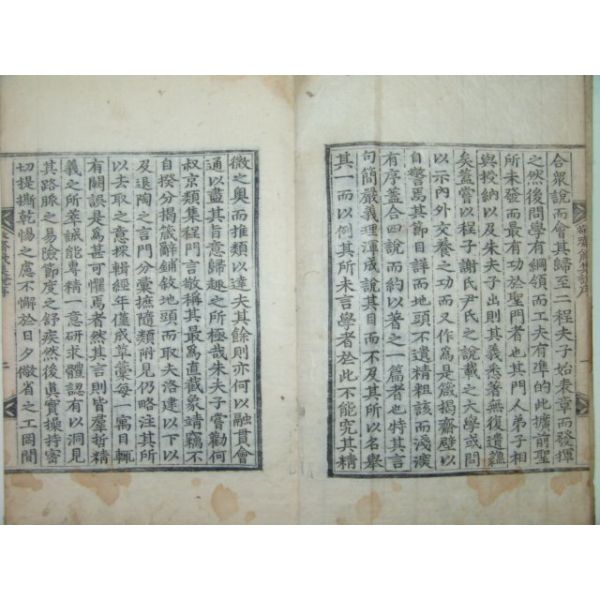 合衆說而會其歸至二程夫子始表章而發揮
之然後問學有綱領而工夫有準的此擴前聖
所未發而最有功於聖門者也其門人弟子相
與授納以及朱夫子出則其義悉著無復遺蘊
矣蓋嘗以程子謝氏尹氏之說載之大學或問
以示內外交養之功而又作爲是箴揭齋壁以
自警焉其節目詳而地頭不遺精粗該而淺深
有序蓋合四說而約以著之一篇者也特其言
句簡嚴義理渾成說其目而不及其所以名擧
其一而以例其所未言學者於此不能究其精
微之奧而推類以達夫其餘則亦何以融貫會
通以盡其旨意歸趣之所極哉朱夫子嘗勸何
叔京類集程門言敬稱其最爲直截象靖竊不
自揆分揭箴辭鋪敘地頭而取夫洛建以下以
及退陶之言門分彙摭隨類附見仍略注其所
以去取之意採輯經年僅成草藁每一寓目輒
有關誤是爲甚可懼焉者然其言則皆羣哲精
義之所萃誠能專精一意硏求體認有以洞見
其路脈之易險節度之舒疾然後眞實操持密
切提撕乾惕之慮不懈於日夕儆省之工罔間